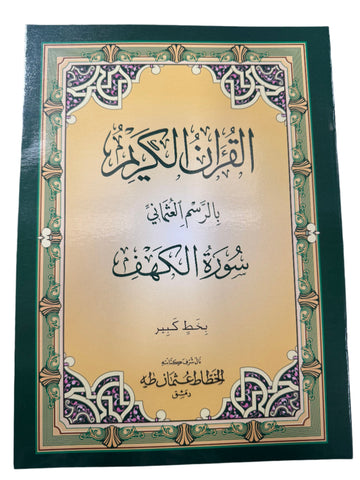 القرآن الكريم
بالرسم العثماني
سورة الكهف
بخط كبير
نال شرف كتابته
الخطاط عثمان طه
دمشق